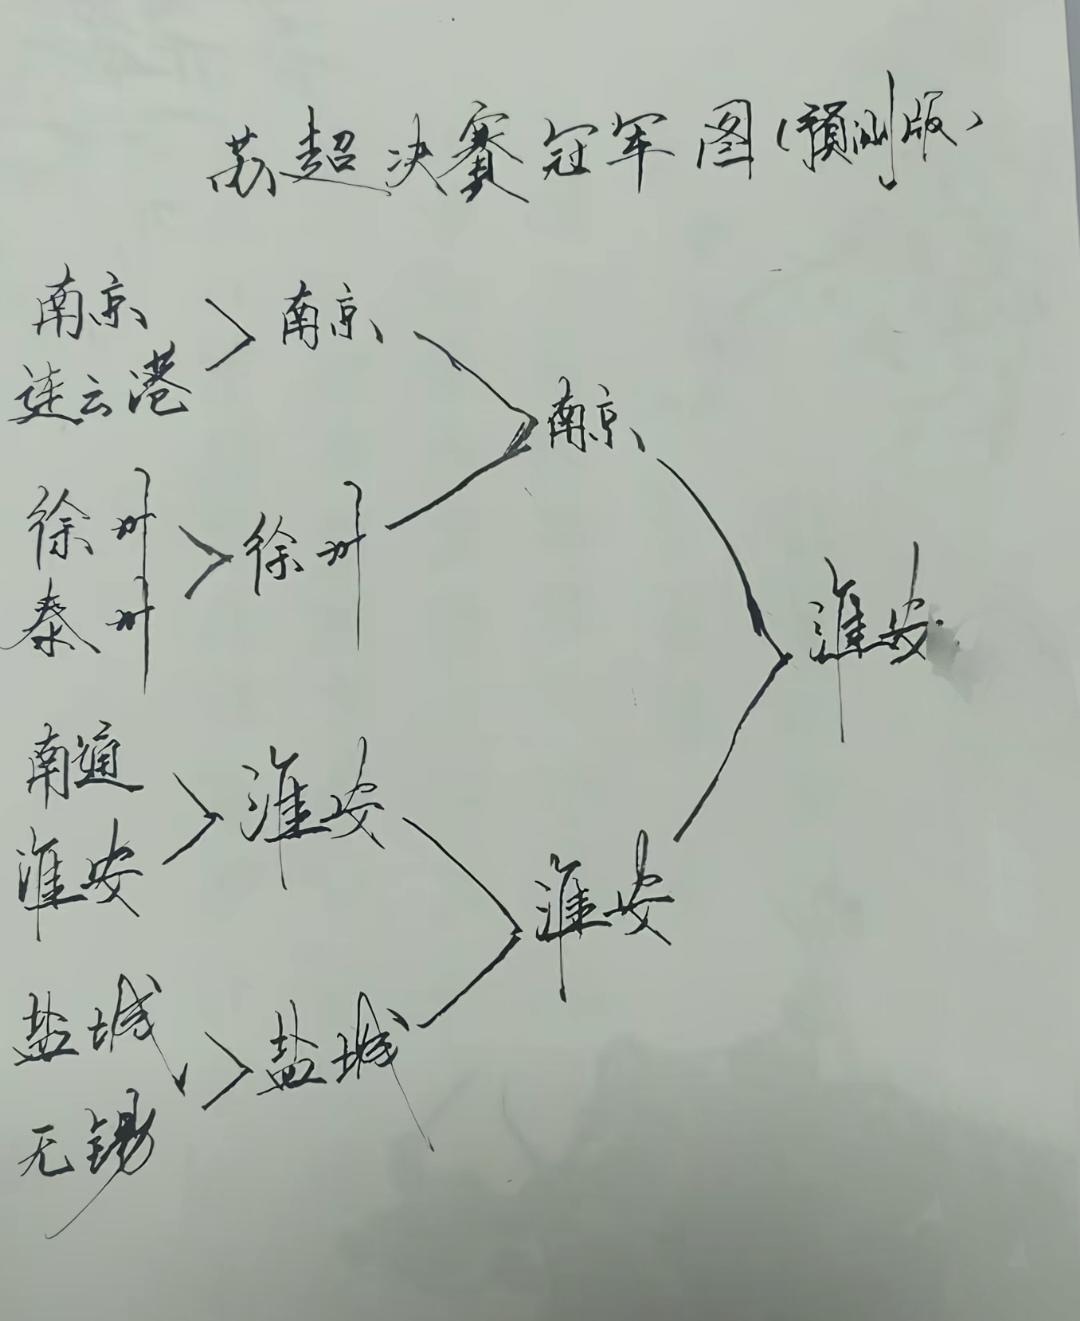 苏超决赛冠军图(预测版)
南京
连云港
南京
徐州
泰州
徐州
南京
南通
淮安
淮安
盐城
无锡
盐城
淮安
淮安